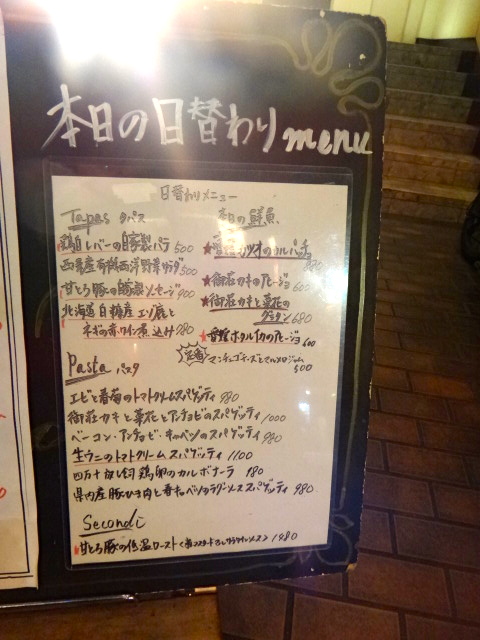 本日の日替わり menu
日替わりメニュー
Tapas タパス
鶏白レバーの自家製パテ 500
西洋野菜サラダ 500
甘とろ豚の自家製ソーセージ 900
北海道白糠産エゾ鹿と
ネギの赤ワイン煮込み 980
本日の鮮魚
★ カツオのカルパッチョ
★御荘カキのアヒージョ 600
★御荘カキと菜花の
グラタン 680
★ ホタルイカのアヒージョ 600
定番 マンチェゴチーズとマルメロジャム
500
Pasta パスタ
エビと春菊のトマトクリームスパゲッティ 980
御荘カキと菜花とアンチョビのスパゲッティ 1000
ベーコン・アンチョビ・キャベツのスパゲッティ 980
生ウニのトマトクリームスパゲッティ 1100
四万十 鶏卵のカルボナーラ 980
県内産豚ひき肉と春キャベツのラグーソーススパゲッティ 980
Secondi
甘とろ豚の低温ロースト 1480